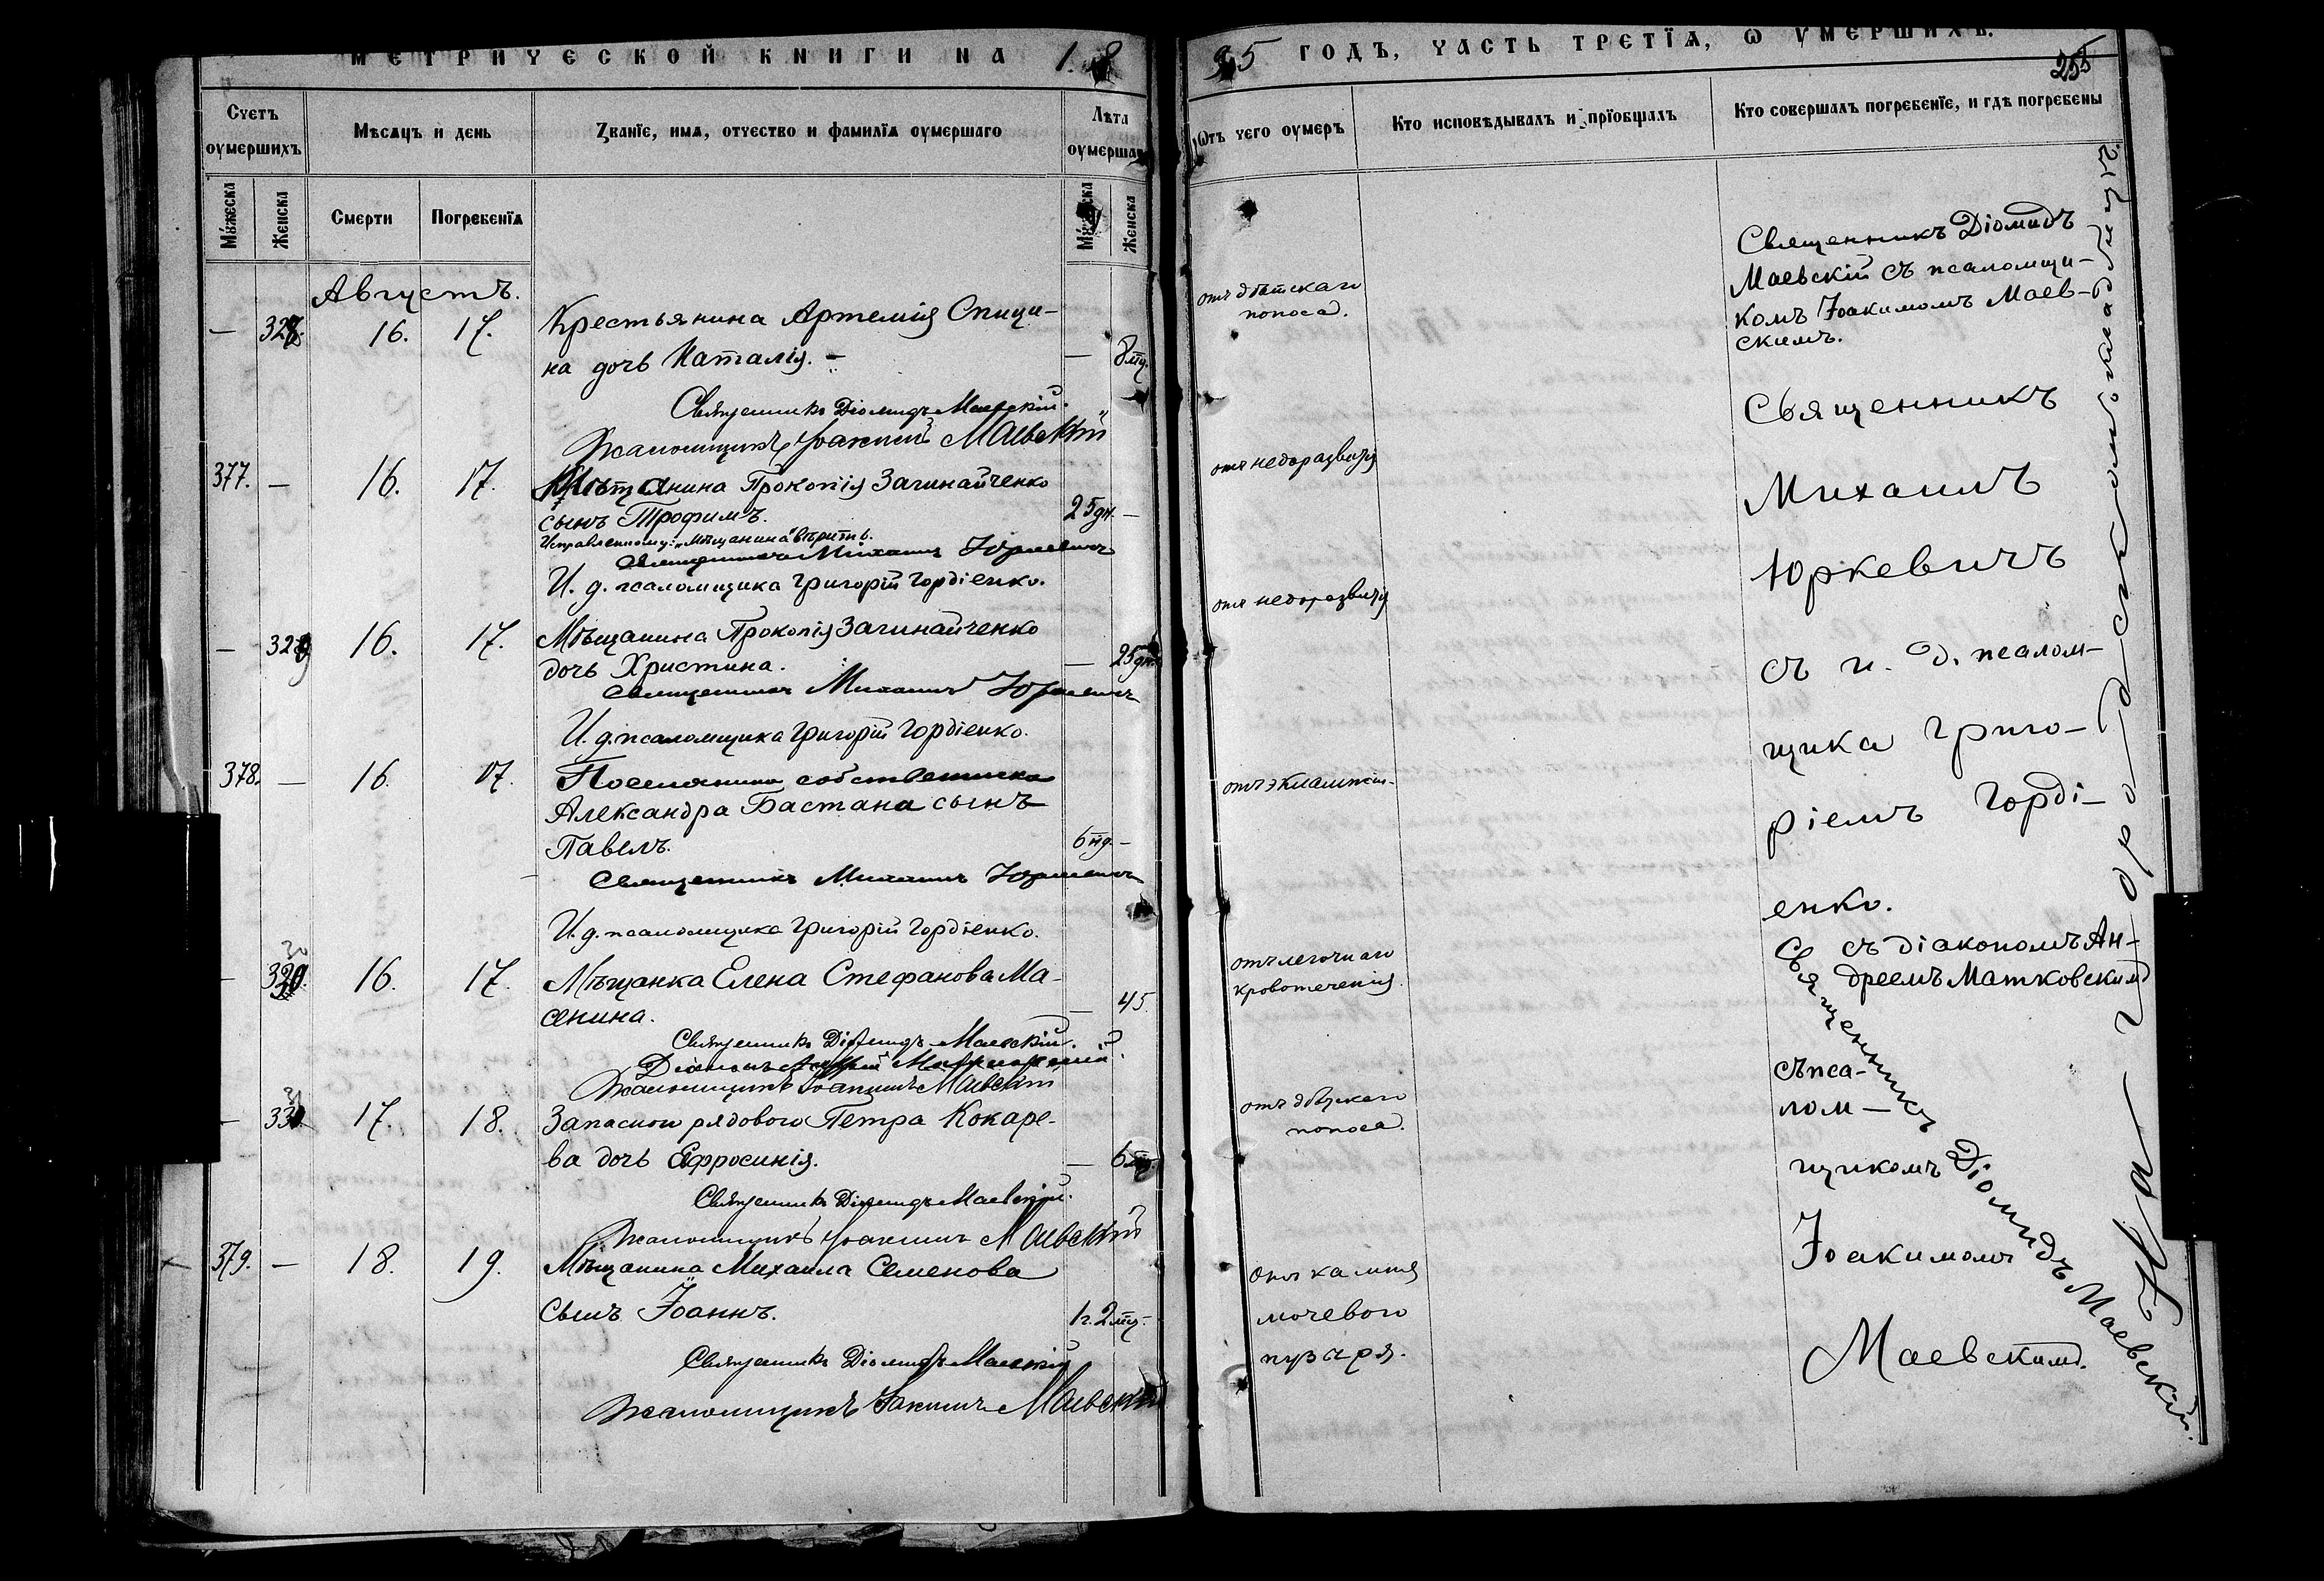 МЕТРИЧЕСКОЙ КНИГИ НА 18
Счетъ оумершихъ
Мѣсяцъ и день
Званїе, имя, отчество и фамилїя оумершаго
Лѣта оумершаго
Мужеска
Женска
Смерти
Погребенїя
Мужеска
Женска
Августъ.
— 328. 16. 17. Крестьянина Артемія Спици-
на дочь Наталія. — — 8 мц.
Священникъ Діомидъ Маевскій.
Псаломщикъ Іоакимъ Маевскій
377. — 16. 17. Мѣщанина Прокопія Загинайченко
сынъ Трофимъ. 25 дн. —
Исправленному: „Мѣщанина" вѣрить.
Священникъ Михаилъ Юркевичъ
И. д. псаломщика Григорій Гордіенко.
— 329 16. 17. Мѣщанина Прокопія Загинайченко
дочь Христина. — 25 дн.
Священникъ Михаилъ Юркевичъ
И. д. псаломщика Григорій Гордіенко.
378. — 16. 17. Поселянина собственника
Александра Бастана сынъ
Павелъ. 6 нд. —
Священникъ Михаилъ Юркевичъ
И. д. псаломщика Григорій Гордіенко.
— 330. 16. 17. Мѣщанка Елена Стефанова Ма-
сенина. — 45.
Священникъ Діомидъ Маевскій.
Діаконъ Андрей Матковскій.
Псаломщикъ Іоакимъ Маевскій
— 331 17. 18. Запаснаго рядового Петра Кокаре-
ва дочь Ефросинія. — 6 мц.
Священникъ Діомидъ Маевскій.
Псаломщикъ Іоакимъ Маевскій
379. — 18. 19. Мѣщанина Михаила Семенова
сынъ Іоаннъ. 1 г. 2 мц. —
Священникъ Діомидъ Маевскій
Псаломщикъ Іоакимъ Маевскій
95 ГОДЪ, ЧАСТЬ ТРЕТЇЯ, Ѡ УМЕРШИХЪ.
255
Ѿтъ чего оумеръ
Кто исповѣдывалъ и прїобщалъ
Кто совершалъ погребенїе, и гдѣ погребены
отъ дѣтскаго
поноса.
отъ недоразвитія
отъ недоразвитія
отъ эклампсіи.
отъ легочнаго
кровотеченія.
отъ дѣтскаго
поноса.
отъ камня
мочевого
пузыря.
Священникъ Діомидъ
Маевскій съ псаломщи-
комъ Іоакимомъ Маев-
скимъ.
Священникъ
Михаилъ
Юркевичъ
съ и. д. псалом-
щика Григо-
ріемъ Горді-
енко.
Священникъ Діомидъ Маевскій.
съ діакономъ Ан-
дреемъ Матковскимъ
съ пса-
лом-
щикомъ
Іоакимомъ
Маевскимъ.
На городскомъ кладбищѣ.